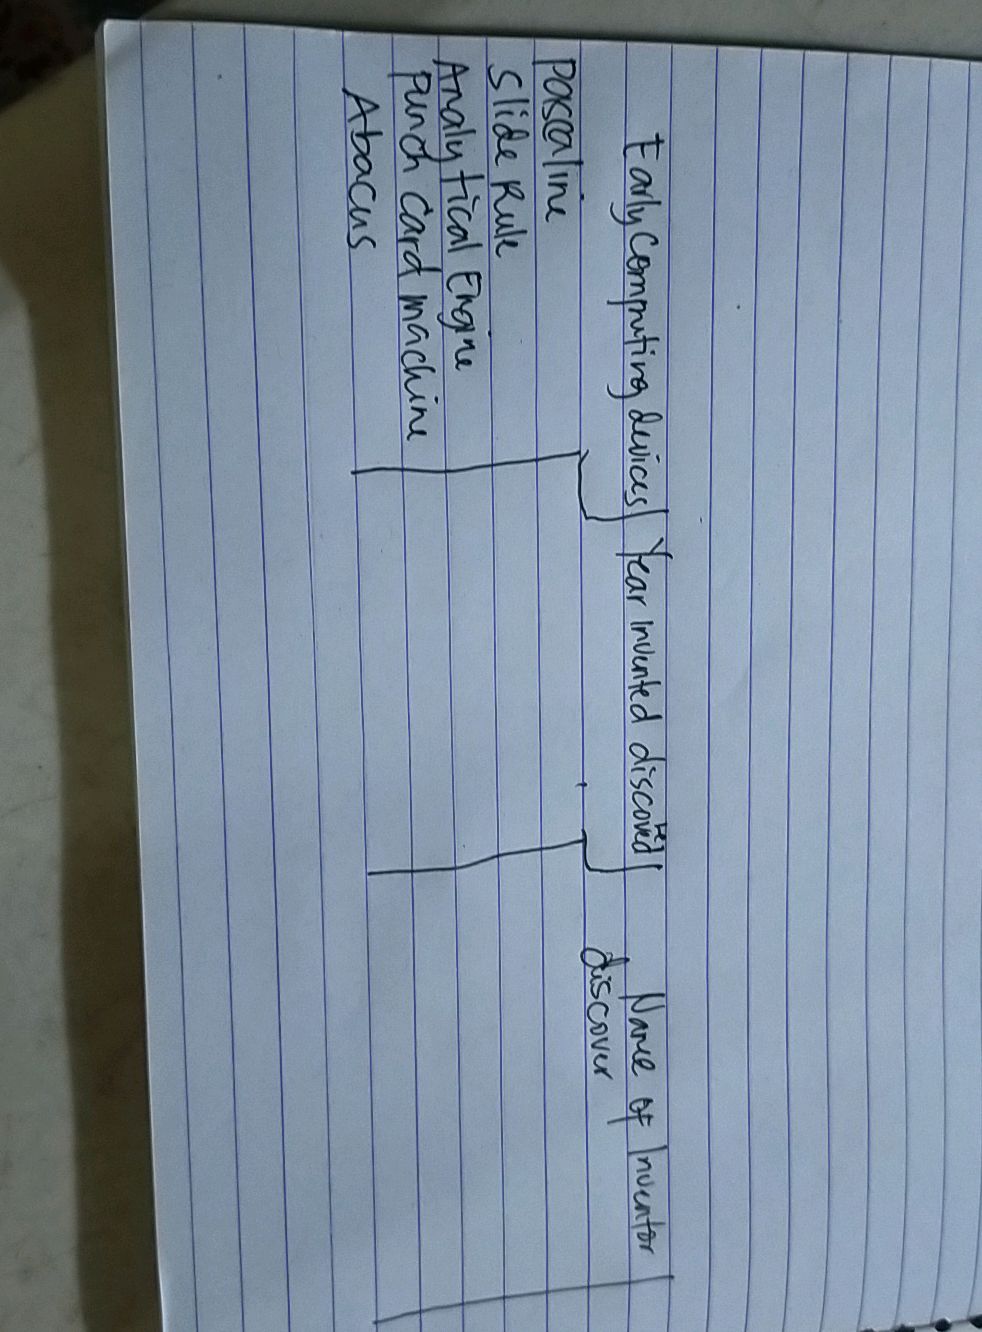 Early Computing devices Year invented discovered Name of Inventor
discover
Pascaline
Slide Rule
Analytical Engine
Punch card machine
Abacus